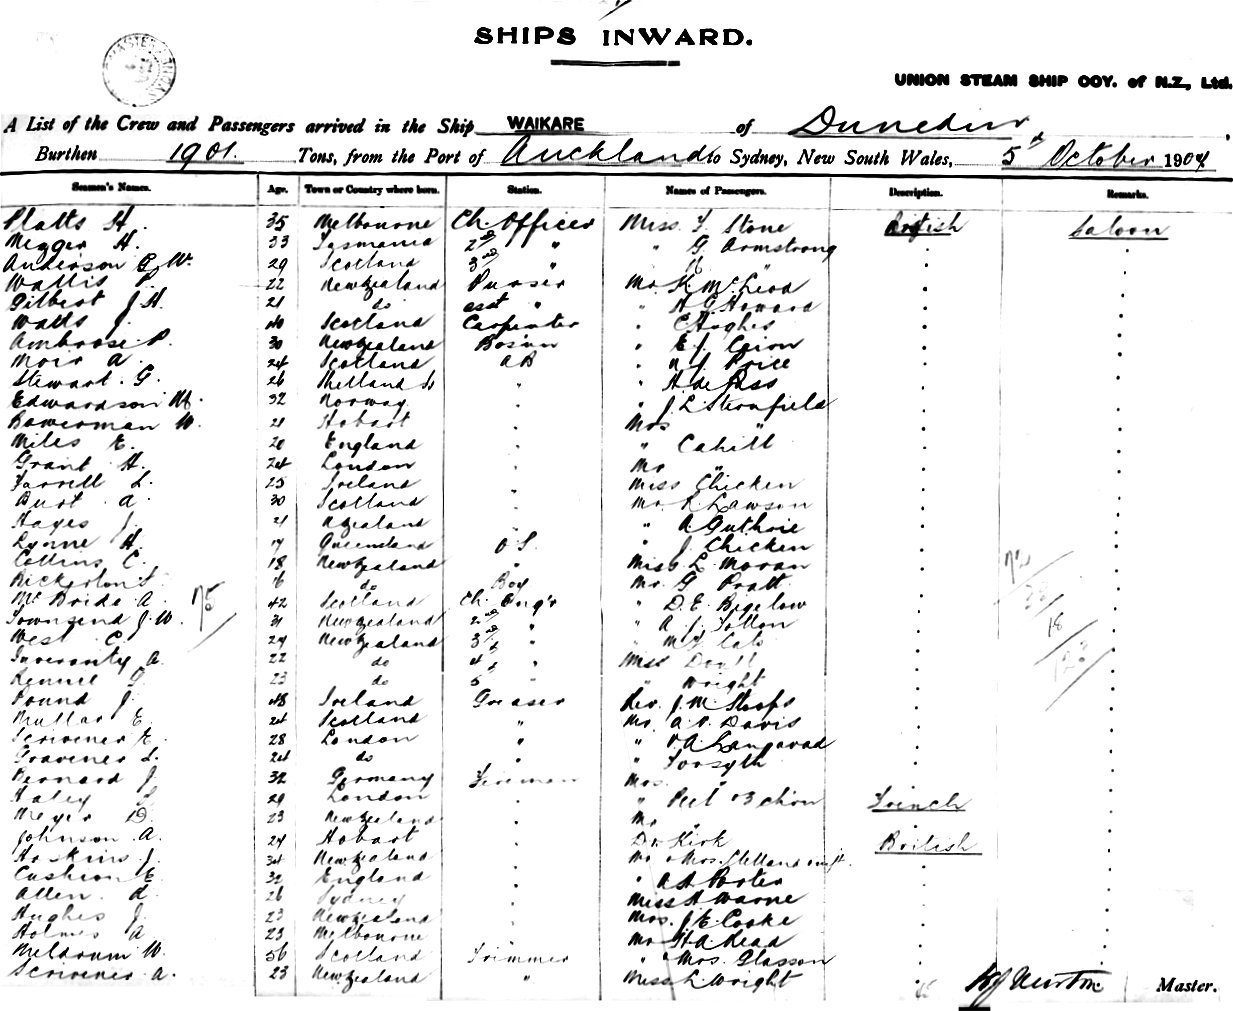 SHIPS INWARD.
UNION STEAM SHIP COY. of N.Z., Ltd.
A List of the Crew and Passengers arrived in the Ship WAIKARE of Dunedin
Burthen 1901. Tons, from the Port of Auckland to Sydney, New South Wales, 5th October 1904
Seamen's Names. Age. Town or Country where born. Station. Names of Passengers. Description. Remarks.
Platts H. 35 Melbourne Ch. Officer Miss F. Stone British Saloon
Megger H. 33 Tasmania 2nd " " G Armstrong
Anderson G W. 29 Scotland 3rd "
Wallis P. 22 New Zealand Purser Mr K. McLeod
Gilbert J H. 21 do asst " " A G Howard
Watts J. 40 Scotland Carpenter " C Hughes
Ambrose P. 30 New Zealand Bos'un " E J.
Moir A. 24 Scotland AB " Price
Stewart G. 26 Shetland Is " H de Pass
Edwardson M. 32 Norway " J L Sternfield
Bowerman W. 21 Hobart Mrs "
Miles E. 20 England " Cahill
Grant H. 24 London Mr "
Farrell L. 25 Ireland Miss Chicken
Burt A. 30 Scotland Mr R Lawson
Hayes J. 21 N Zealand " A Guthrie
Lynne H. 17 Queensland O S. " J. Chicken
Collins C. 18 New Zealand " Miss L Moran
Bickerton S. 16 do Boy Mr G Pratt
McBride A. 42 Scotland Ch. Eng'r " D. E. Bigelow
Townsend J W. 31 New Zealand 2nd " " A J. Totton
West C. 29 New Zealand 3rd " "
Inverarity A. 22 do 4th " Miss
Rennie G. 23 do 5 " " Wright
Pound J. 48 Ireland Greaser Rev. J. M.
Mullar E. 24 Scotland " Mr A. P. Davis
Scrivener E. 28 London " "
Gravener L. 24 do " " Forsyth
Bernard J. 32 Germany Fireman Mrs. "
Haley S. 29 London " French
Meyer D. 23 New Zealand Mr "
Johnson A. 24 Hobart Dr Kirk British
Hoskins J. 34 New Zealand Mr & Mrs.
Cushion E. 32 England " A H Porter
Allen. A. 26 Sydney Miss A Warne
Hughes J. 23 New Zealand Mrs. J. E. Cooke
Holmes A 23 Melbourne Mr H. A. Read
Meldrum W. 56 Scotland Trimmer " & Mrs. Glasson
Scrivener A. 23 New Zealand " Miss L Wright
75
18
Newton Master.